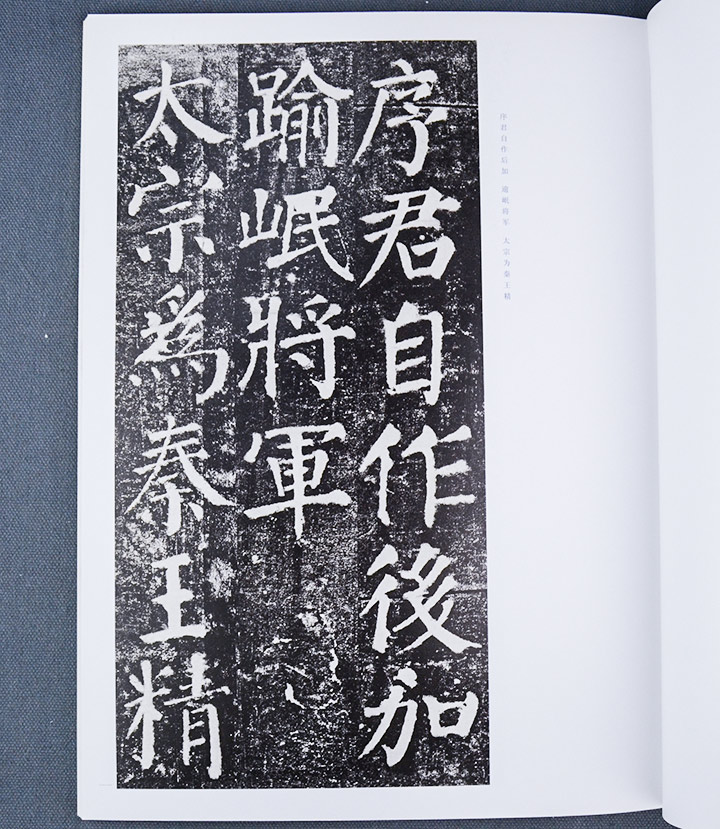 序君自作後加
踰岷將軍
太宗為秦王精
序君自作后加 逾岷将军 太宗为秦王精